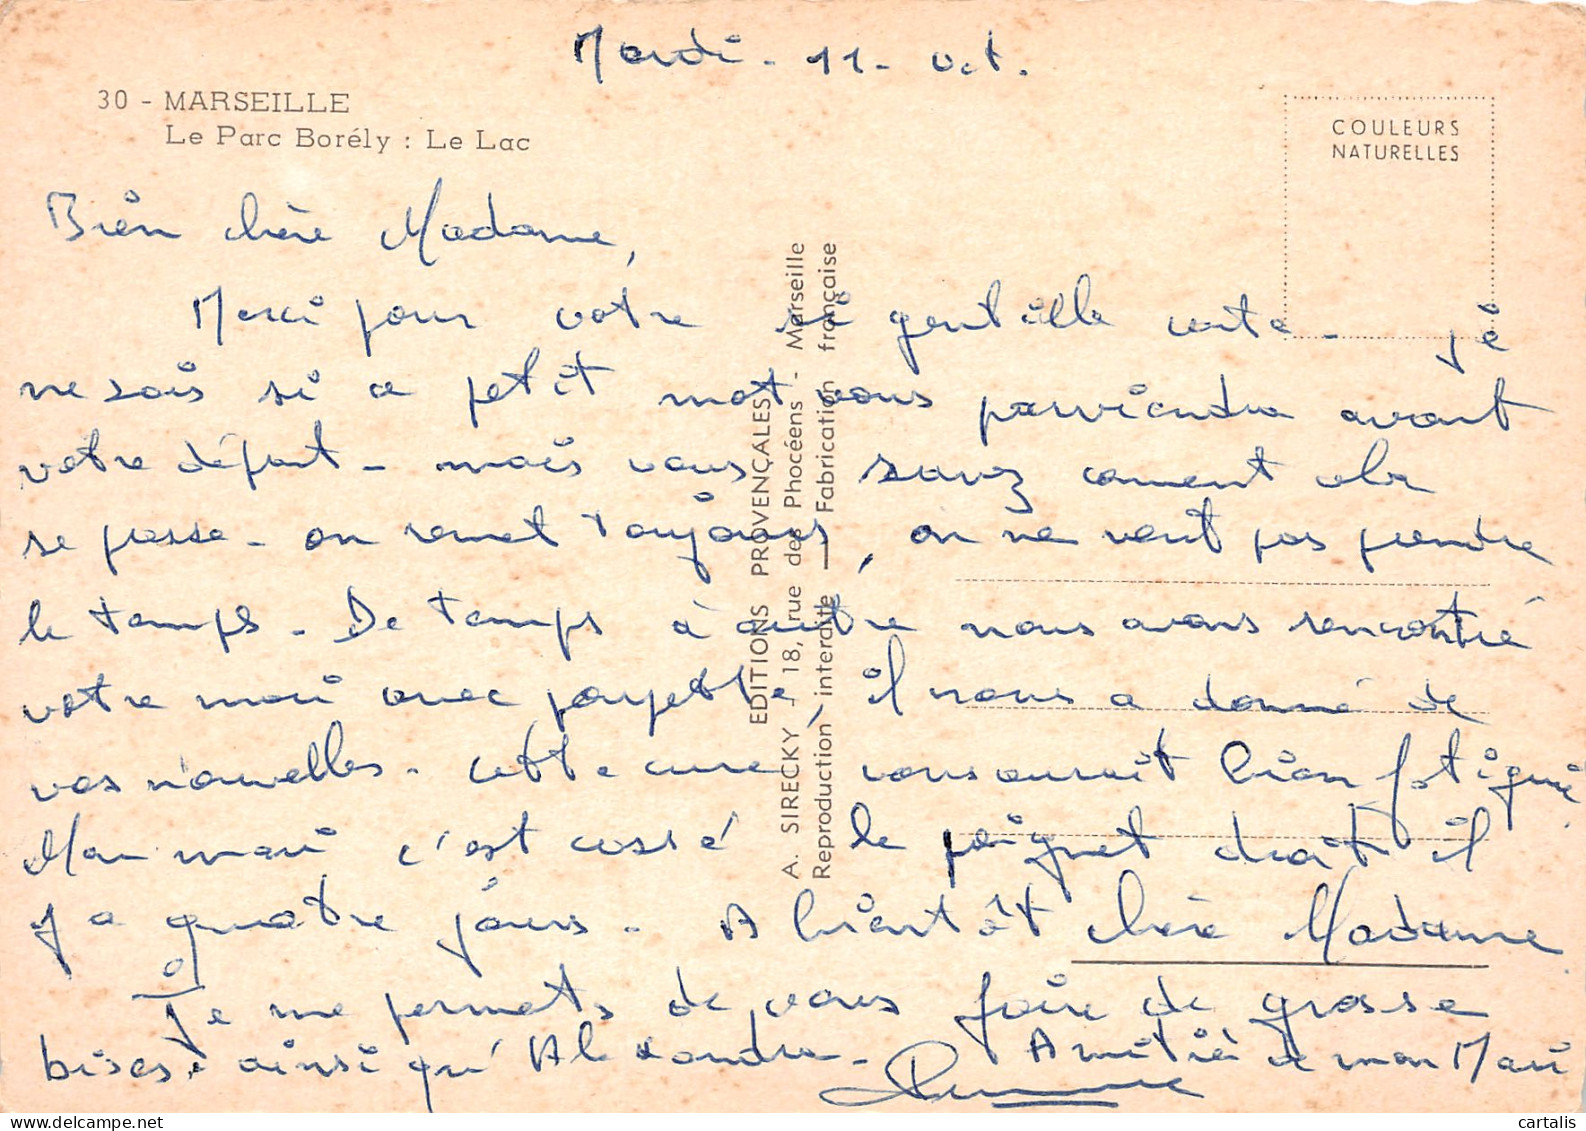 Mardi - 11 - Oct.
30 - MARSEILLE
Le Parc Borély : Le Lac
COULEURS
NATURELLES
Bien chère Madame,
Merci pour votre si gentille carte - je
ne sais si ce petit mot vous parviendra avant
votre départ - mais vous savez comment cela
se passe - on remet toujours, on ne veut pas prendre
le temps - De temps à autre nous avons rencontré
votre mari avec il nous a donné de
vos nouvelles - cette cure vous aurait bien fatigué
Mon mari c'est cassé le poignet droit il
y a quatre jours - A bientôt chère Madame
Je me permets de vous faire de grosse
bises ainsi qu'Alexandra - Amitié de mon Mari
EDITIONS PROVENÇALES
A. SIRECKY - 18, rue des Phocéens - Marseille
Reproduction interdite — Fabrication française
cartalis